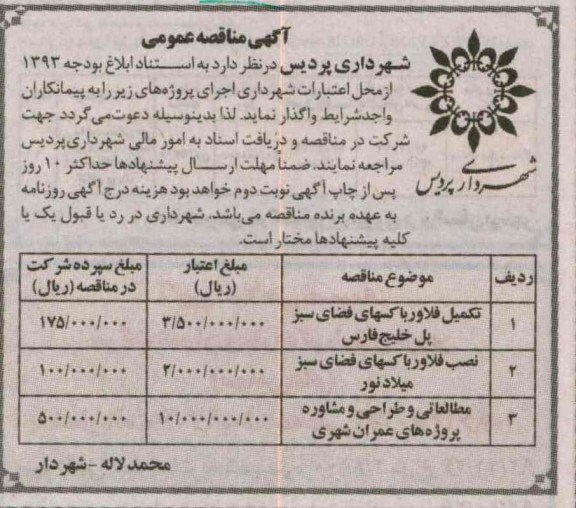 آگهی مناقصه عمومی
شهرداری پردیس درنظر دارد به استناد ابلاغ بودجه ۱۳۹۳
ازمحل اعتبارات شهرداری اجرای پروژه‌های زیر را به پیمانکاران
واجدشرایط واگذار نماید. لذا بدینوسیله دعوت می‌گردد جهت
شرکت در مناقصه و دریافت اسناد به امور مالی شهرداری پردیس
مراجعه نمایند. ضمناً مهلت ارسال پیشنهادها حداکثر ۱۰ روز
پس از چاپ آگهی نوبت دوم خواهد بود هزینه درج آگهی روزنامه
به عهده برنده مناقصه می‌باشد. شهرداری در رد یا قبول یک یا
کلیه پیشنهادها مختار است.
شهرداری پردیس
ردیف موضوع مناقصه مبلغ اعتبار (ریال) مبلغ سپرده شرکت در مناقصه (ریال)
۱ تکمیل فلاورباکسهای فضای سبز پل خلیج فارس ۳/۵۰۰/۰۰۰/۰۰۰ ۱۷۵/۰۰۰/۰۰۰
۲ نصب فلاورباکسهای فضای سبز میلاد نور ۲/۰۰۰/۰۰۰/۰۰۰ ۱۰۰/۰۰۰/۰۰۰
۳ مطالعاتی و طراحی و مشاوره پروژه‌های عمران شهری ۱۰/۰۰۰/۰۰۰/۰۰۰ ۵۰۰/۰۰۰/۰۰۰
محمد لاله - شهردار